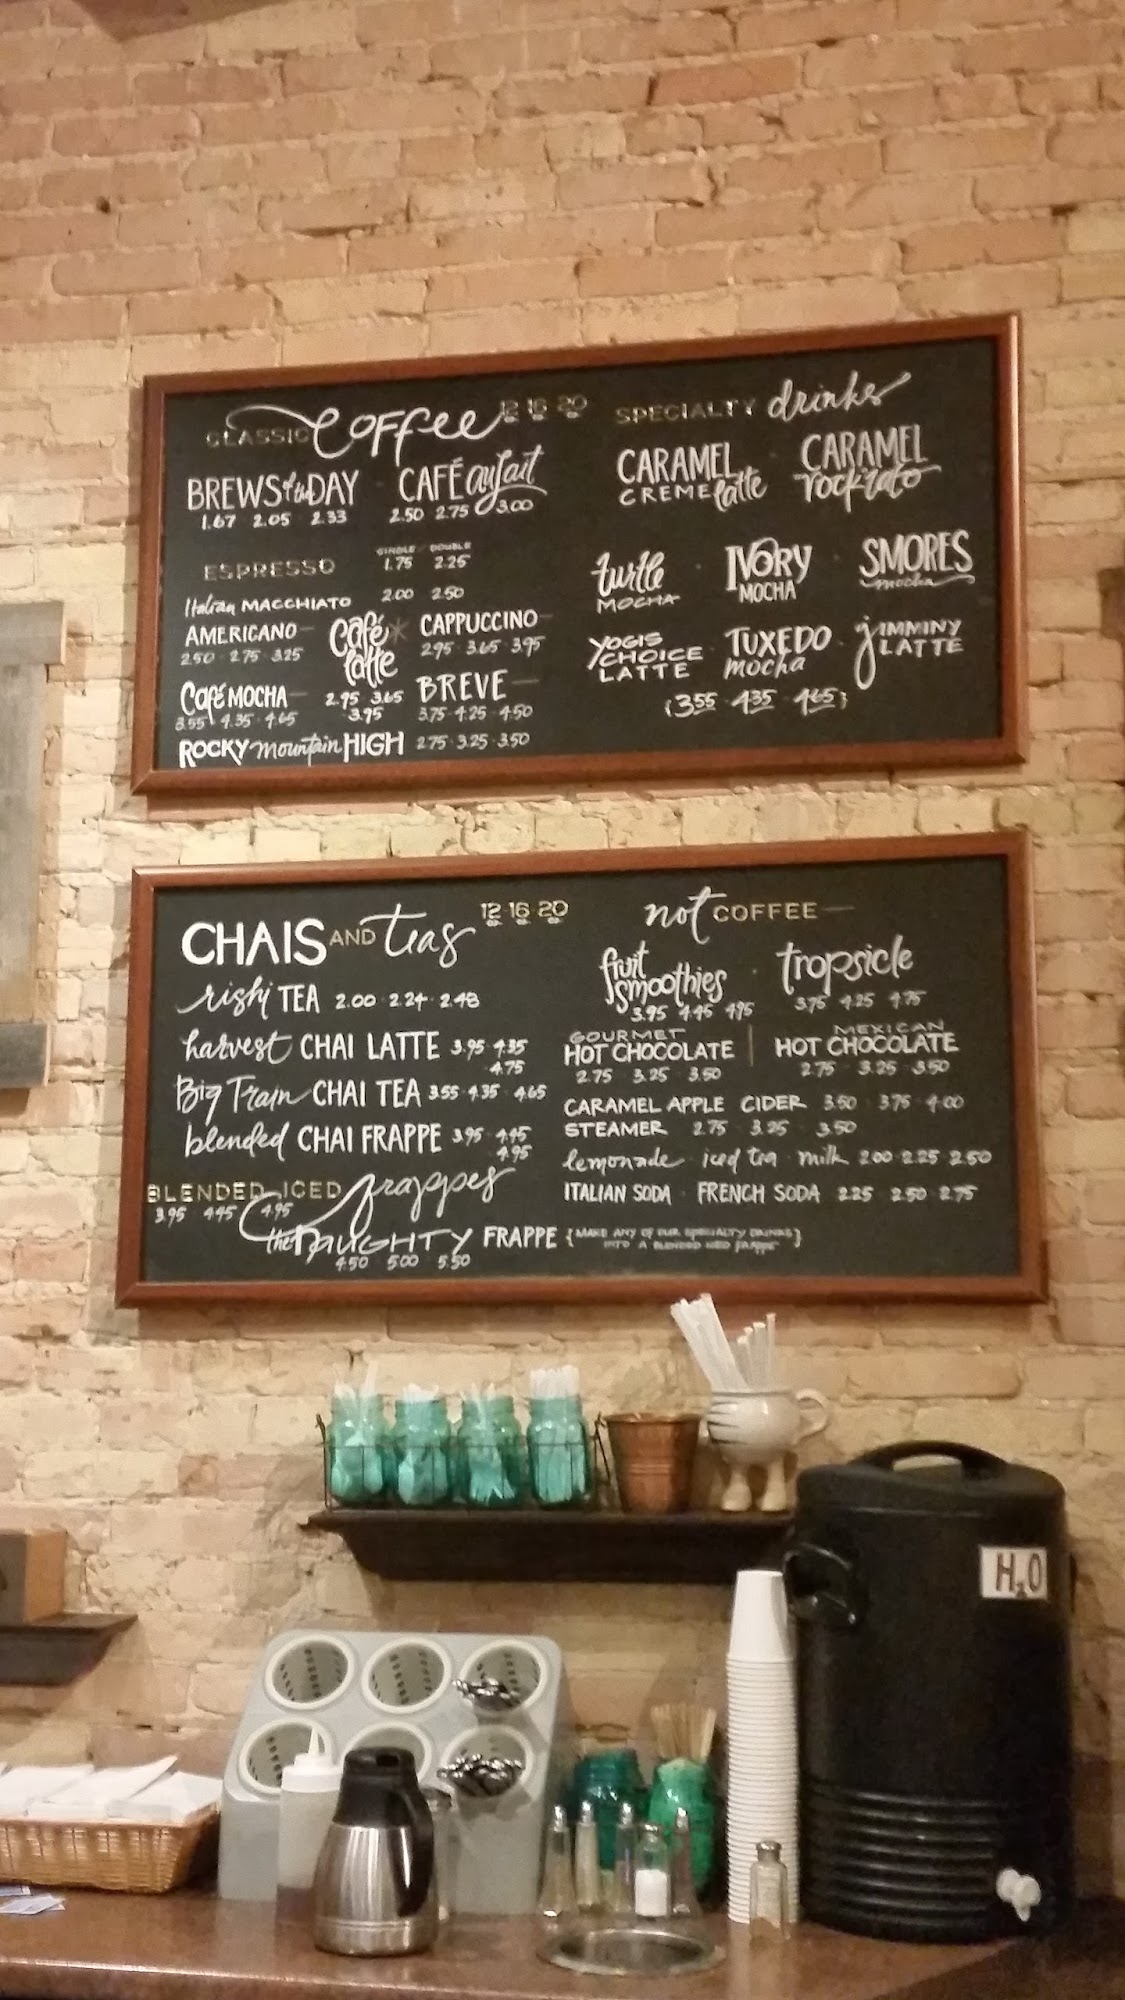 CLASSIC COFFEE 12 16 20
BREWS of the DAY
1.67 2.05 2.33
CAFÉ au lait
2.50 2.75 3.00
SINGLE DOUBLE
ESPRESSO 1.75 2.25
Italian MACCHIATO 2.00 2.50
AMERICANO
2.50 · 2.75 · 3.25
Café latte
2.95 3.65
3.95
CAPPUCCINO
2.95 · 3.65 · 3.95
Café MOCHA
3.55 · 4.35 · 4.65
BREVE
3.75 · 4.25 · 4.50
ROCKY mountain HIGH 2.75 · 3.25 · 3.50
SPECIALTY drinks
CARAMEL CREME latte · CARAMEL rockiato
turtle MOCHA · IVORY MOCHA · SMORES mocha
YOGIS CHOICE LATTE · TUXEDO mocha · JIMMINY LATTE
{3.55 · 4.35 · 4.65}
CHAIS AND teas 12 16 20
oz oz oz
rishi TEA 2.00 · 2.24 · 2.48
harvest CHAI LATTE 3.95 4.35
4.75
Big Train CHAI TEA 3.55 · 4.35 · 4.65
blended CHAI FRAPPE 3.95 · 4.45
4.95
BLENDED ICED frappes
3.95 4.45 4.95
the NAUGHTY FRAPPE {MAKE ANY OF OUR SPECIALTY DRINKS
INTO A BLENDED ICED FRAPPE}
4.50 5.00 5.50
not COFFEE
fruit smoothies · tropsicle
3.95 4.45 4.95
3.75 4.25 4.75
GOURMET HOT CHOCOLATE
2.75 3.25 3.50
MEXICAN HOT CHOCOLATE
2.75 · 3.25 · 3.50
CARAMEL APPLE CIDER 3.50 · 3.75 · 4.00
STEAMER 2.75 3.25 3.50
lemonade · iced tea · milk 2.00 · 2.25 · 2.50
ITALIAN SODA · FRENCH SODA 2.25 2.50 2.75
H₂O